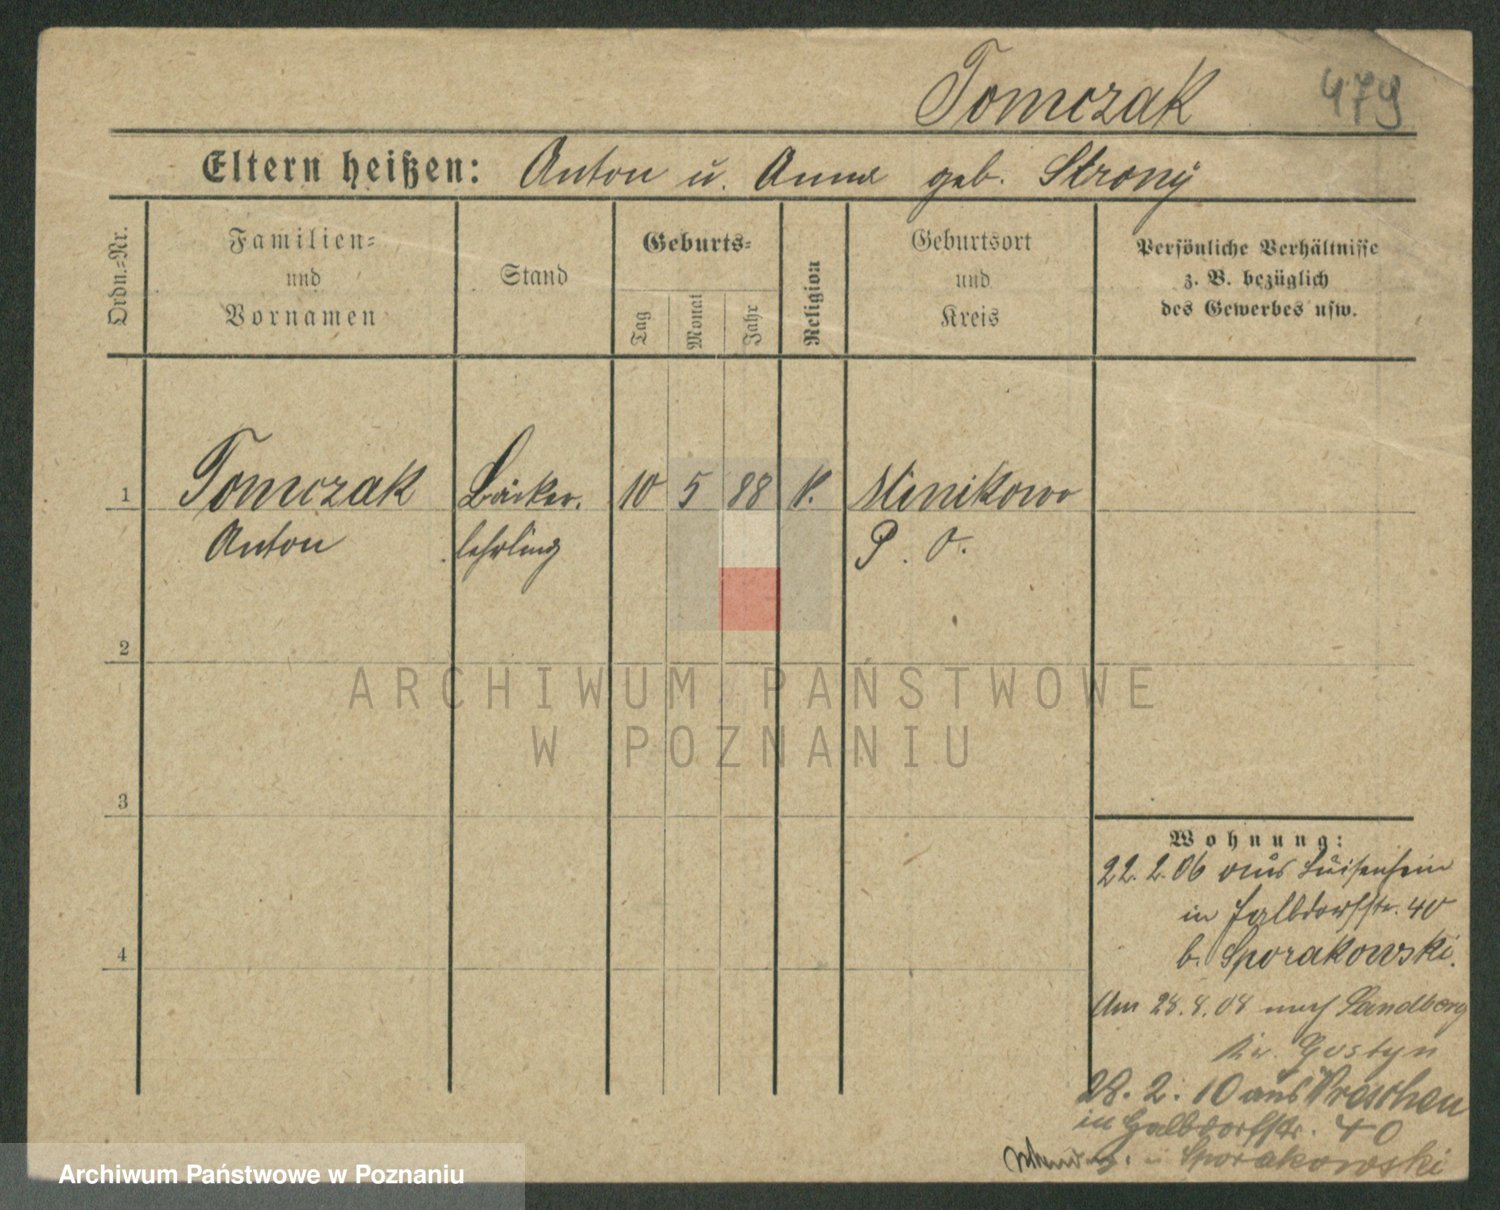 Tomczak 479
Eltern heißen: Anton u. Anna geb. Strony
Ordn.-Nr.
Familien-
und
Vornamen
Stand
Geburts-
Tag
Monat
Jahr
Religion
Geburtsort
und
Kreis
Persönliche Verhältnisse
z. B. bezüglich
des Gewerbes usw.
1 Tomczak Bäcker. 10 5 88 K. Minikowo
Anton lehrling P. O.
2
3
4
Wohnung:
22.2.06 aus Luisenhain
in Halbdorfstr. 40
b. Sporakowski.
Am 28.8.08 nach Sandberg
Kr. Gostyn
28. 2. 10 aus Wreschen
in Halbdorfstr. 40
Sporakowski
ARCHIWUM PAŃSTWOWE
W POZNANIU
Archiwum Państwowe w Poznaniu